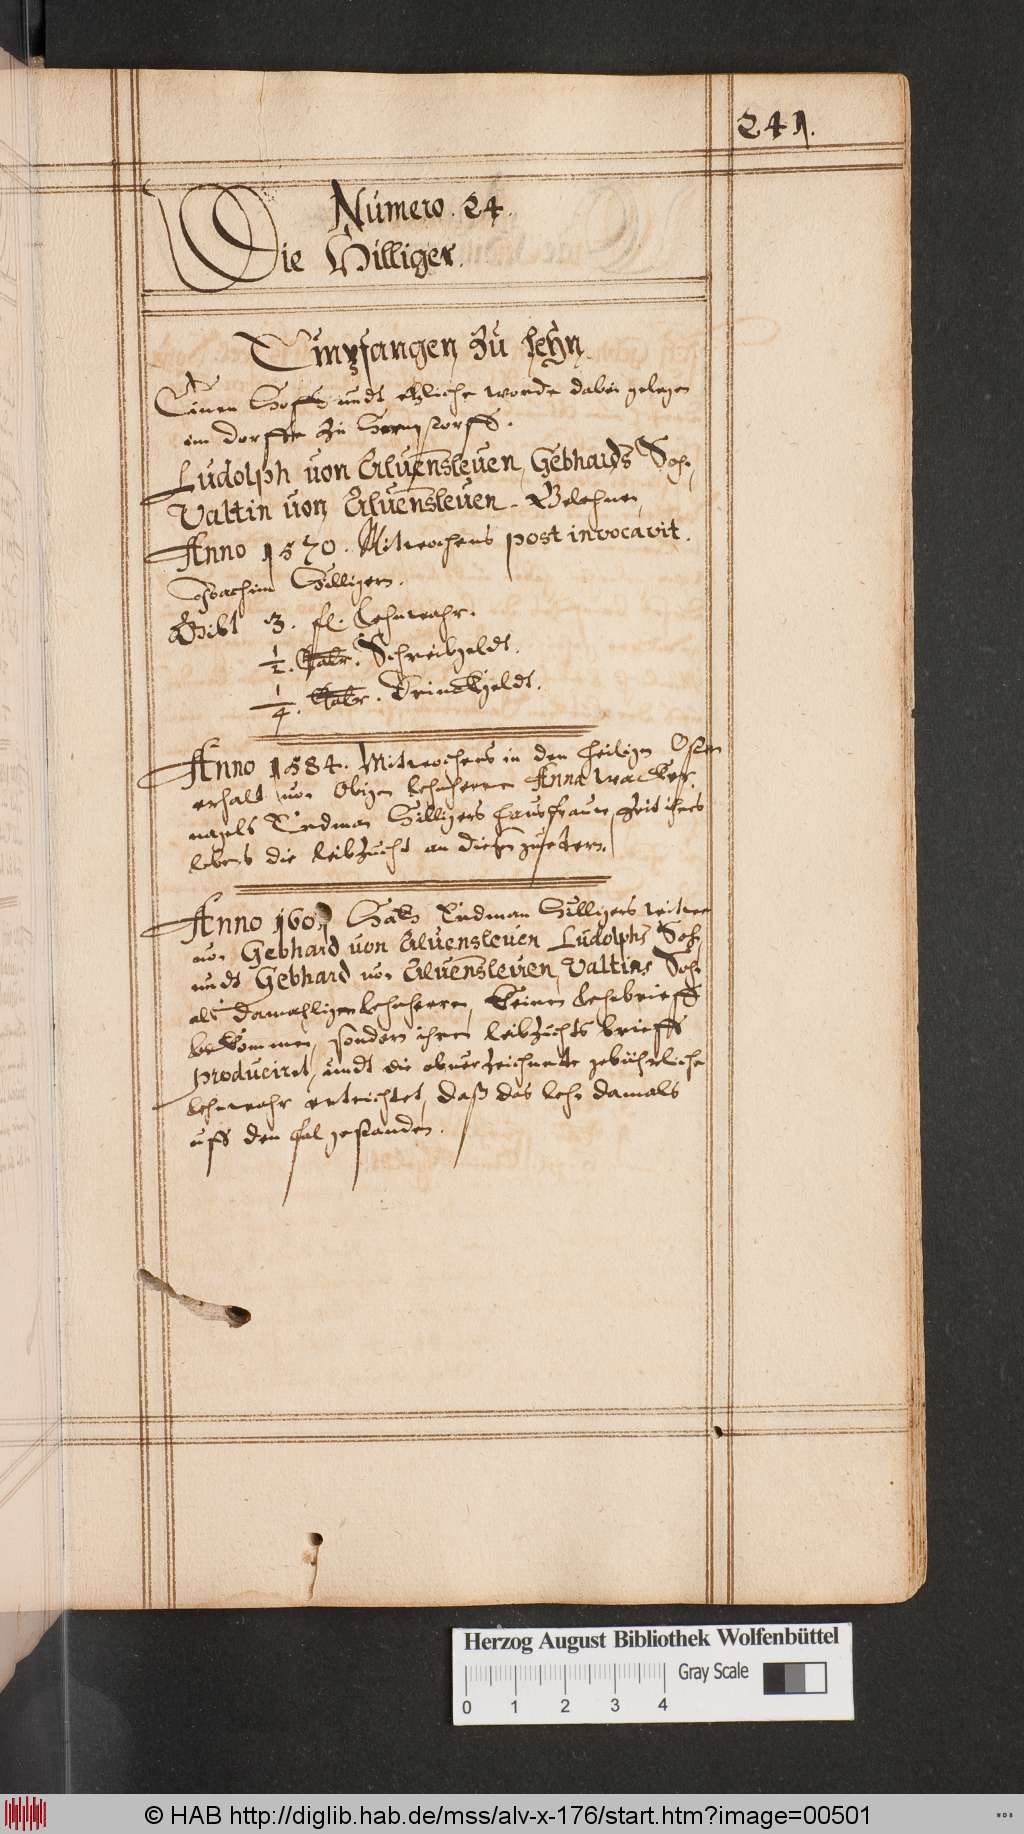 241.
Numero. 24.
Die Hilliger.
Empfangen zu lehn
Einen Hoff undt etzliche worde dabei gelegen
im dorffe zu
Ludolph von Alvensleven, Gebhards Sohn,
Valtin von Alvensleven. Belehnen,
Anno 1570. Mitwochens post invocavit.
Joachim Hilligern.
Gibt 3. fl. Lehnwahr.
1/2. Schreibgeldt.
1/4. Drinckgeldt.
Anno 1584. Mitwochens in den heiligen Ostern
erhalt von Obigen lehnherrn Anna Wacker
nagels Erdman Hilligers hausfrauwe, Zeit ihres
lebens die leibzucht an diesen guetern.
Anno Hatt Erdman Hilligers witwe
von Gebhard von Alvensleven Ludolphs Sohn,
undt Gebhard von Alvensleven, Valtins Sohn
als damahligen lehnherren, keinen lehnbrieff
bekommen, sondern ihren leibzuchts brieff
produciret, undt die obverzeichnete gebührliche
lehnwahr entrichtet, daß das lehn damals
uff den fal gestanden.
Herzog August Bibliothek Wolfenbüttel
Gray Scale
0 1 2 3 4
© HAB http://diglib.hab.de/mss/alv-x-176/start.htm?image=00501